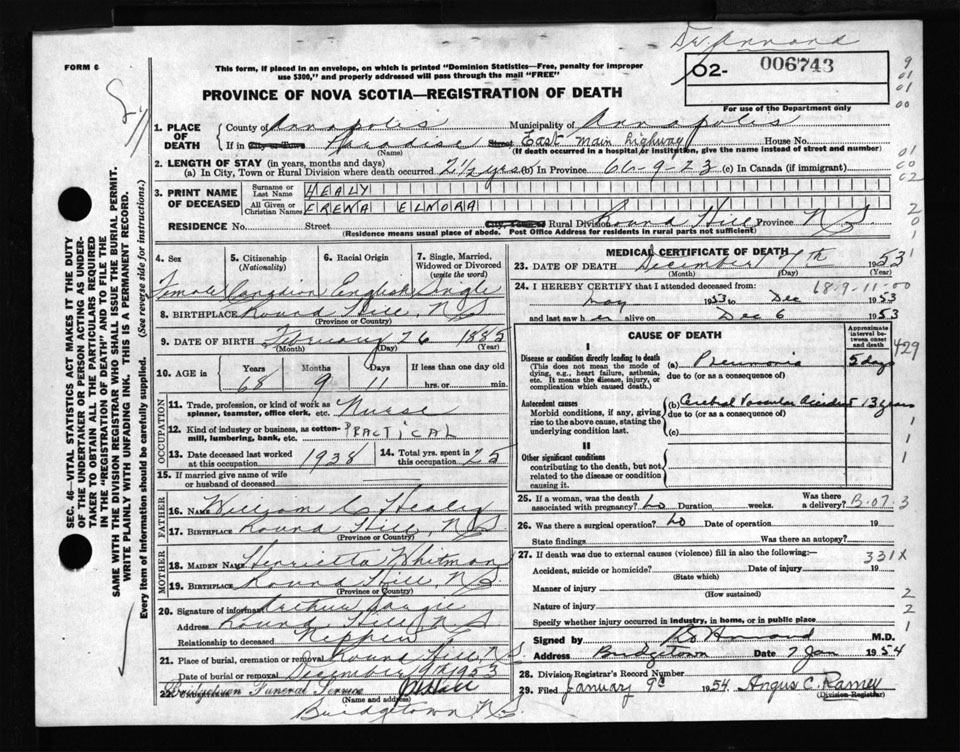 Dr Armand
FORM 6
This form, if placed in an envelope, on which is printed "Dominion Statistics—Free, penalty for improper
use $300," and properly addressed will pass through the mail "FREE"
02- 006743
PROVINCE OF NOVA SCOTIA—REGISTRATION OF DEATH
For use of the Department only
9
01
01
00
1. PLACE OF DEATH
County of Annapolis Municipality of Annapolis
If in City or Town Paradise Street East Main Highway House No.
(Name) (If death occurred in a hospital or institution, give the name instead of street and number)
2. LENGTH OF STAY (in years, months and days)
(a) In City, Town or Rural Division where death occurred 2½ yrs (b) In Province 68-9-23 (c) In Canada (if immigrant)
01
00
02
3. PRINT NAME OF DECEASED
Surname or Last Name HEALY
All Given or Christian Names ERENA ELMORA
RESIDENCE No. Street City, Town or Rural Division Round Hill Province N.S
(Residence means usual place of abode. Post Office Address for residents in rural parts not sufficient)
2
0
1
4. Sex 5. Citizenship (Nationality) 6. Racial Origin 7. Single, Married, Widowed or Divorced (write the word)
Female Canadian English Single
8. BIRTHPLACE Round Hill, N.S
(Province or Country)
9. DATE OF BIRTH February 26 1885
(Month) (Day) (Year)
10. AGE in Years Months Days If less than one day old
68 9 11 hrs. or min.
OCCUPATION
11. Trade, profession, or kind of work as spinner, teamster, office clerk, etc. Nurse
12. Kind of industry or business, as cotton-mill, lumbering, bank, etc. PRACTICAL
13. Date deceased last worked at this occupation 1938 14. Total yrs. spent in this occupation 25
15. If married give name of wife or husband of deceased
FATHER
16. NAME William C Healy
17. BIRTHPLACE Round Hill, N.S.
(Province or Country)
MOTHER
18. MAIDEN NAME Henrietta Whitman
19. BIRTHPLACE Round Hill, N.S.
(Province or Country)
20. Signature of informant Arthur
Address Round Hill N S
Relationship to deceased Neppew
21. Place of burial, cremation or removal Round Hill, N.S
Date of burial December 9th 1953
22. Undertaker Bridgetown Funeral Service
(Name and address)
Bridgetown N.S.
MEDICAL CERTIFICATE OF DEATH
23. DATE OF DEATH December 7th 1953
(Month) (Day) (Year)
24. I HEREBY CERTIFY that I attended deceased from: 68-9-11-00
May 1953 to Dec 1953
and last saw her alive on Dec 6 1953
CAUSE OF DEATH
Approximate interval between onset and death
I
Disease or condition directly leading to death
(This does not mean the mode of dying, e.g., heart failure, asthenia, etc. It means the disease, injury, or complication which caused death.)
(a) Pneumonia 5 days
due to (or as a consequence of)
429
Antecedent causes
Morbid conditions, if any, giving rise to the above cause, stating the underlying condition last.
(b) Cerebral Vascular Accident 13 years
due to (or as a consequence of)
(c)
II
Other significant conditions
contributing to the death, but not related to the disease or condition causing it.
1
1
1
25. If a woman, was the death associated with pregnancy? No Duration weeks. Was there a delivery? B-07-3
26. Was there a surgical operation? No Date of operation 19
State findings Was there an autopsy?
27. If death was due to external causes (violence) fill in also the following: 331X
Accident, suicide or homicide? Date of injury 19
(State which)
Manner of injury
(How sustained)
Nature of injury
Specify whether injury occurred in industry, in home, or in public place
2
2
1
Signed by M.D.
Address Bridgetown Date 7 Jan 1954
28. Division Registrar's Record Number
29. Filed January 9th 1954 Angus C. Ramey
(Division Registrar)
SEC. 46—VITAL STATISTICS ACT MAKES IT THE DUTY
OF THE UNDERTAKER OR PERSON ACTING AS UNDER-
TAKER TO OBTAIN ALL THE PARTICULARS REQUIRED
IN THE "REGISTRATION OF DEATH" AND TO FILE THE
SAME WITH THE DIVISION REGISTRAR WHO SHALL ISSUE THE BURIAL PERMIT.
WRITE PLAINLY WITH UNFADING INK. THIS IS A PERMANENT RECORD.
Every item of information should be carefully supplied. (See reverse side for instructions.)